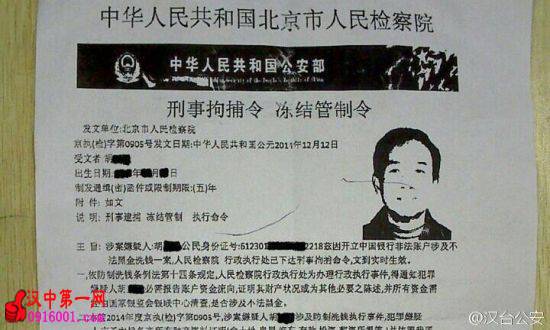 中华人民共和国北京市人民检察院
中华人民共和国公安部
刑事拘捕令 冻结管制令
发文单位:北京市人民检察院
京执(检)字第0905号发文日期:中华人民共和国公元2014年12月12日
受文者:胡
出生日期: 年 月 日
制发通缉(密)函件或限制期限:(五)年
附 件:如文
说 明:刑事逮捕 冻结管制 执行命令
主 旨:涉案嫌疑人:胡 公民身份证号:612301 2218兹因开立中国银行非法账户涉及不
法黑金洗钱一案,人民检察院 行政执处已下达刑事拘捕令,文到实时生效。
一、依防制洗钱条例法第十四条规定,人民检察院行政执处为办理行政执行事件,得通知犯罪
嫌疑人胡 必需报告账户资金流向,证明其财产状况或为其他必要之陈述,并所有资金需
经由国家
2014年
汉中第一网
0916001.com
@汉台公安